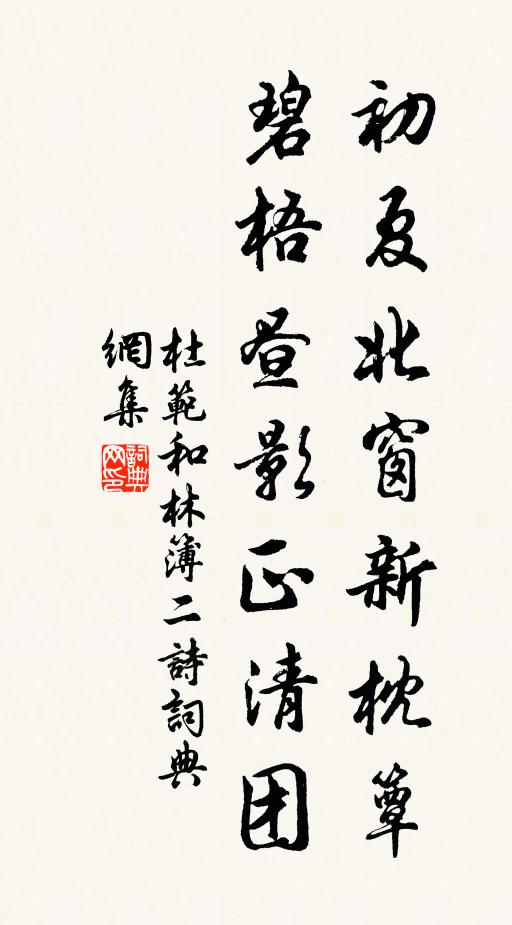 初夏北窗新枕簟
碧梧昼影正清团
杜範和林簿二詩詞典
網集
詞典
网印